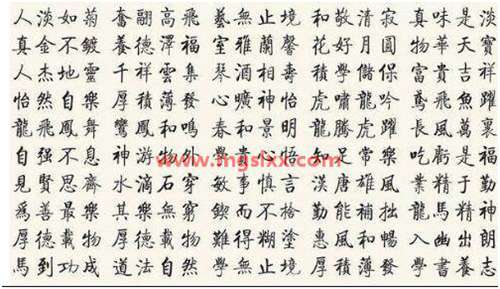 人淡如菊 奮翮高飛 藝無止境 和敬清寂 真味是淡
真金不鍍 養德澤福 室雅蘭馨 花好月圓 物華天寶
人杰地靈 千祥雲集 琴酒相壽 積學儲保 富貴吉祥
怡然自樂 厚積薄發 心曠神怡 虎嘯龍吟 鳶飛魚躍
龍飛鳳舞 鸞鳳和鳴 春和景明 龍騰虎躍 長風萬裏
自强不息 神游物外 知足常樂 吃虧是福
www.mgslxx.com
見賢思齊 水滴石穿 敏事慎言 漢唐雄風 業精于勤
為善最樂 其樂無窮 鍥而不捨 勤能補拙 龍馬精神
厚德載物 厚德載物 難得糊塗 惠風和暢 入幽出朗
馬到功成 道法自然 學無止境 厚積薄發 學書養志